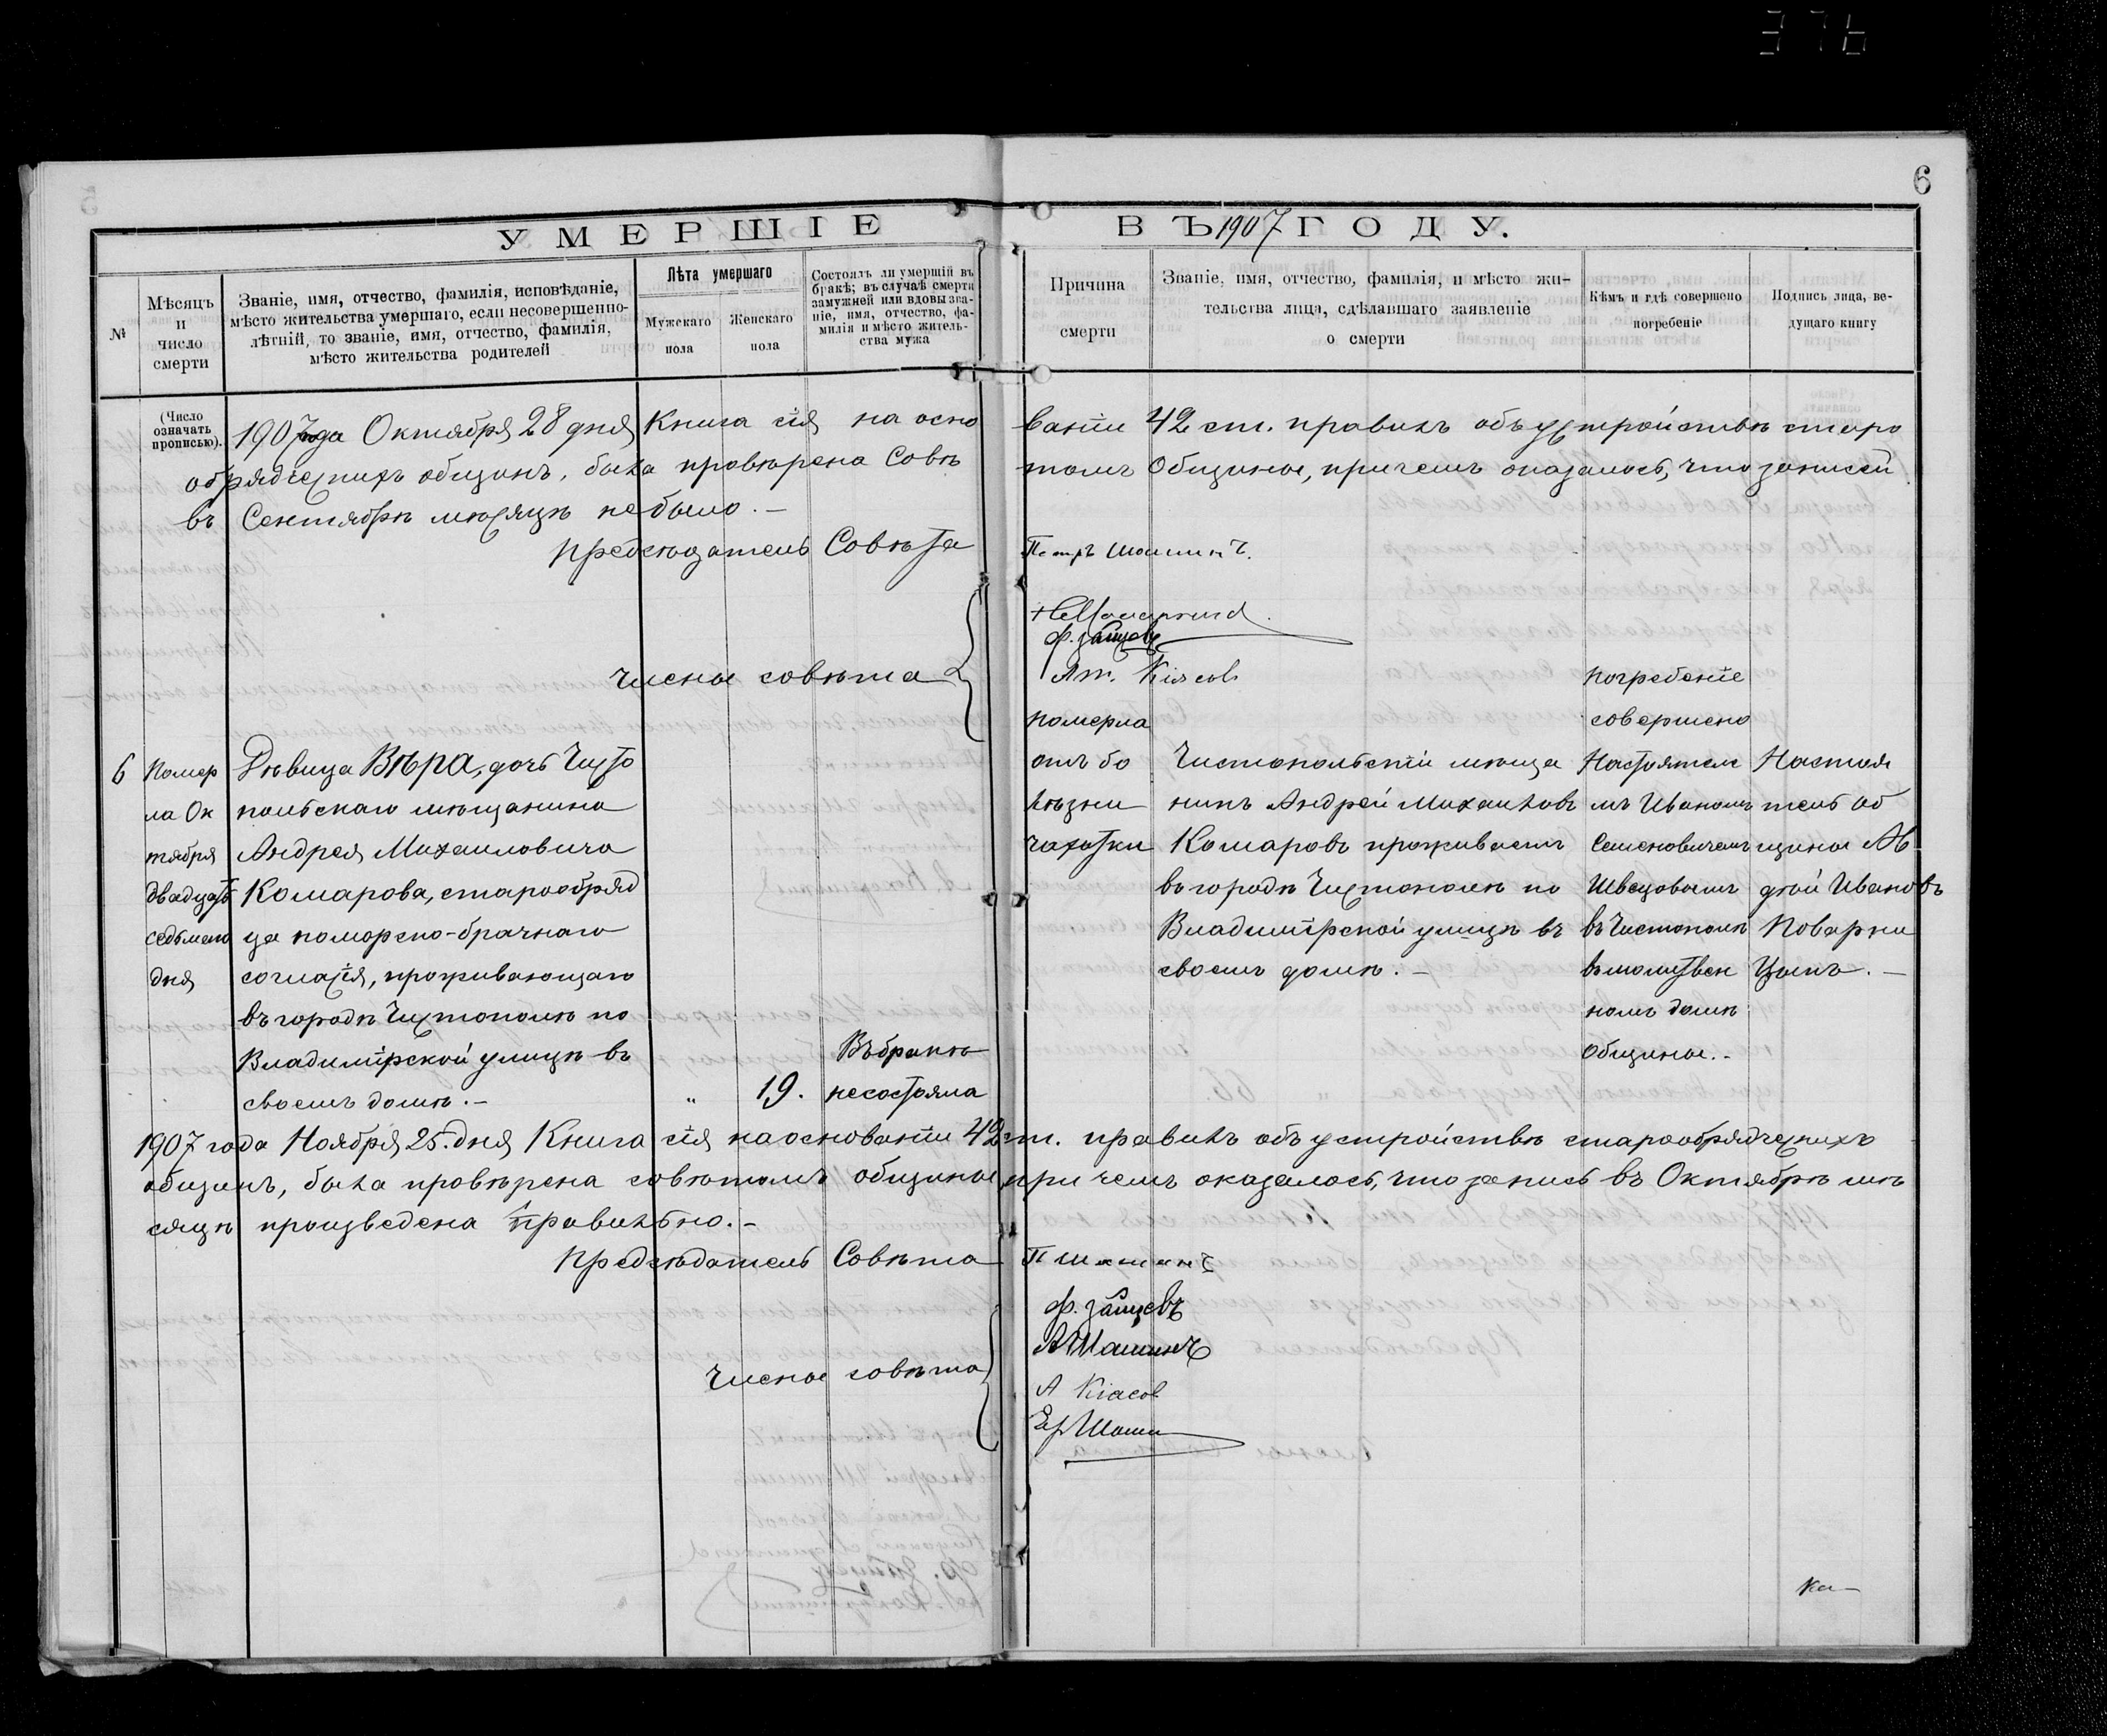 6
УМЕРШІЕ ВЪ 1907 ГОДУ.
№
Мѣсяцъ
и
число
смерти
Званіе, имя, отчество, фамилія, исповѣданіе,
мѣсто жительства умершаго, если несовершенно-
лѣтній, то званіе, имя, отчество, фамилія,
мѣсто жительства родителей
Лѣта умершаго
Мужскаго
пола
Женскаго
пола
Состоялъ ли умершій въ
бракѣ; въ случаѣ смерти
замужней или вдовы зва-
ніе, имя, отчество, фа-
милія и мѣсто житель-
ства мужа
Причина
смерти
Званіе, имя, отчество, фамилія, и мѣсто жи-
тельства лица, сдѣлавшаго заявленіе
о смерти
Кѣмъ и гдѣ совершено
погребеніе
Подпись лица, ве-
дущаго книгу
(Число
означать
прописью).
1907 года Октября 28 дня Книга сія на осно ваніи 42 ст. правилъ объ устройствѣ старо
обрядческихъ общинъ, была провѣрена Совѣ томъ Общины, причемъ оказалось, что записей
въ Сентябрѣ мѣсяцѣ не было. –
Предсѣдатель Совѣта Петръ Шашинъ.
Ф. Зайцевъ
Члены совѣта Ат. Кіясовъ
6
Помер
ла Ок
тября
двадцать
седьмаго
дня
Дѣвица Вѣра, дочь Чисто
польскаго мѣщанина
Андрея Михаиловича
Комарова, старообряд
ца поморско-брачнаго
согласія, проживающаго
въ городѣ Чистополѣ по
Владимірской улицѣ въ
своемъ домѣ. –
"
19.
Въ бракѣ
несостояла
померла
отъ бо
лѣзни
чахотки
Чистопольскій мѣща
нинъ Андрей Михаиловъ
Комаровъ проживаетъ
въ городѣ Чистополѣ по
Владимірской улицѣ въ
своемъ домѣ. –
погребеніе
совершено
Настоятеле
мъ Иваномъ
Семеновичемъ
Швецовымъ
въ Чистополѣ
въ молитвен
номъ домѣ
Общины. –
Настоя
тель об
щины Ав
дѣй Ивановъ
Поварни
цынъ. –
1907 года Ноября 25. дня Книга сія на основаніи 42 ст. правилъ объ устройствѣ старообрядческихъ
общинъ, была провѣрена совѣтомъ общины при чемъ оказалось, что запись въ Октябрѣ мѣ
сяцѣ произведена правильно. –
Предсѣдатель Совѣта П Шашинъ
Ф. Зайцевъ
А Шашинъ
Члены совѣта
А Кіасов